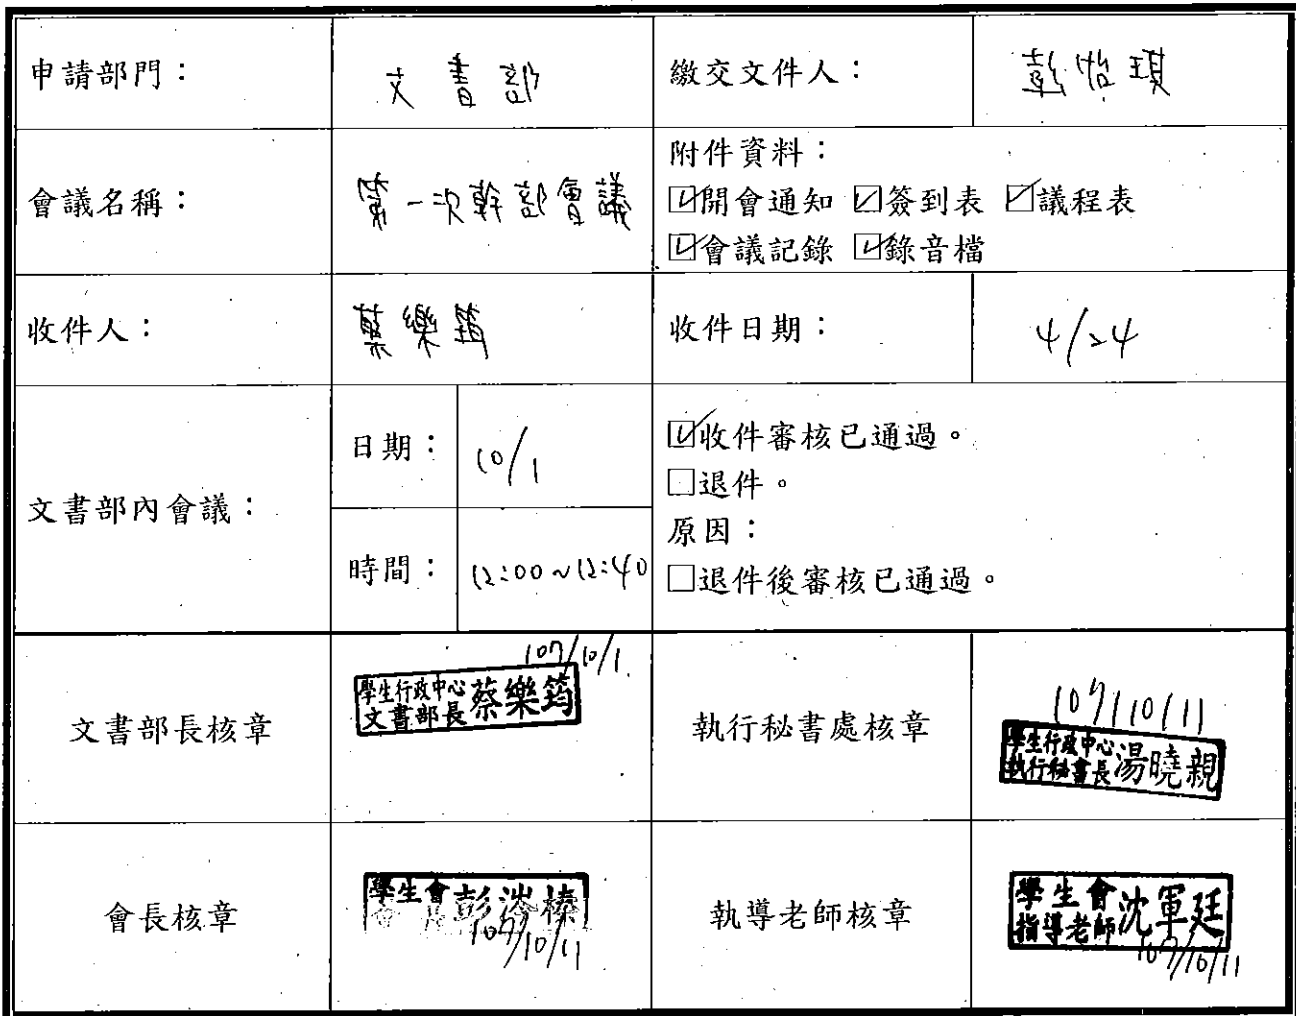 申請部門：
文書部
繳交文件人：
彭怡琪
會議名稱：
第一次幹部會議
附件資料：
☑開會通知 ☑簽到表 ☑議程表
☑會議記錄 ☑錄音檔
收件人：
蔡樂筠
收件日期：
4/24
文書部內會議：
日期：
10/1
時間：
12:00~12:40
☑收件審核已通過。
☐退件。
原因：
☐退件後審核已通過。
文書部長核章
107/10/1
學生行政中心
文書部長
蔡樂筠
執行秘書處核章
107/10/11
學生行政中心
執行秘書長
湯曉親
會長核章
學生會
會長
彭
107/10/11
執導老師核章
學生會
指導老師
沈軍廷
107/10/11